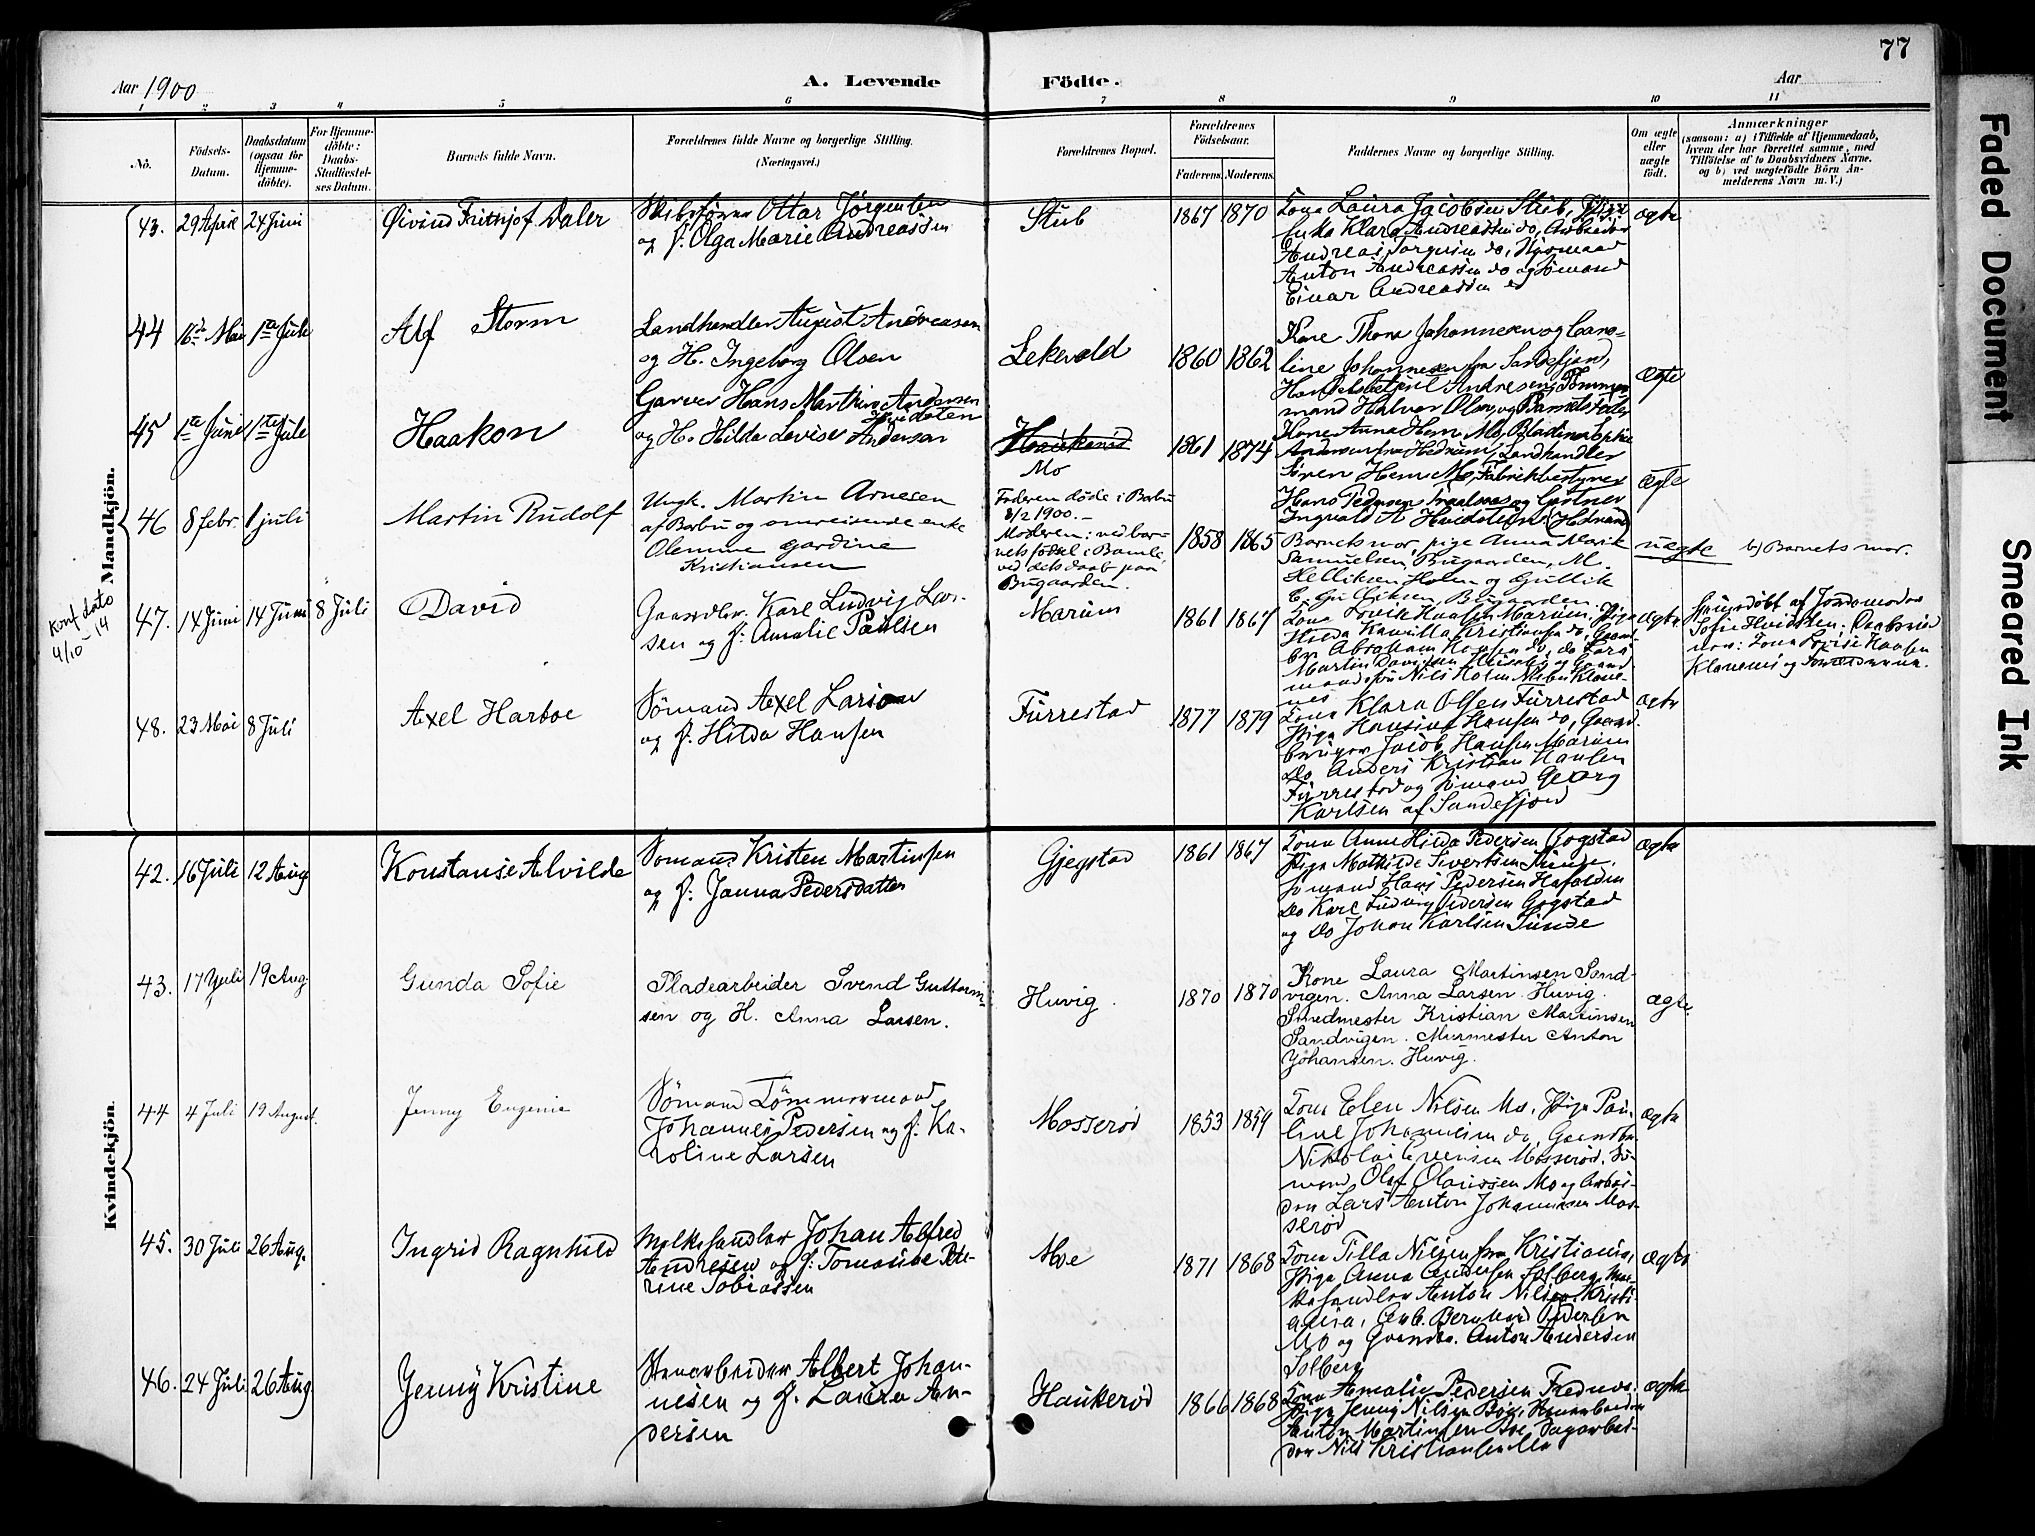 77
Aar 1900
A. Levende
Födte.
Aar
1 2 3 4 5 6 7 8 9 10 11
No.
Födsels-
Datum.
Daabsdatum
(ogsaa for
Hjemme-
döbte).
For Hjemme-
döbte:
Daabs-
Stadfæstel-
ses Datum.
Barnets fulde Navn.
Forældrenes fulde Navne og borgerlige Stilling.
(Næringsvei.)
Forældrenes Bopæl.
Forældrenes
Födselsaar.
Faderens. Moderens.
Faddernes Navne og borgerlige Stilling.
Om ægte
eller
uægte
födt.
Anmærkninger
(saasom: a) i Tilfælde af Hjemmedaab,
hvem der har forrettet samme, med
Tilföielse af to Daabsvidners Navne.
og b) ved uægtefödte Börn An-
melderens Navn m. V.)
Mandkjön.
43. 29 April 24 Juni
Øivind Frithjof Daler
Skibsfører Ottar Jørgensen
og H. Olga Marie Andreassen
Stub
1867 1870
Kona Laura Jacobsen Stub, Pige
Klara Andreassen do, Arbeider
Andreas Torgersen do,
Anton Andreassen do og Sømand
Einar Andreassen
ægte
44 16de Mai 1ste Juli
Alf Storm
Landhandler August Andreasen
og H. Ingeborg Olsen
Lekevold
1860 1862
Kone Thora Johannesen og Caro-
line Johannesen fra Sandefjord,
Andresen, Tømmer-
mand Halvor Olsen, og Barnets Fader
ægte
45 1ste Juni 1ste Juli
Haakon
Garver Hans Marthin Andersen
Hvidsten
og H. Hilda Lovise Andersen
Haukerød
Mo
1861 1874
Kone Anna Hem Mo,
Andersen fra Hedrum, Landhandler
Søren Hem Mo, Fabrikbestyrer
Hans Pedersen og Gartner
Ingvald A Hvidsten (Hedrum)
ægte
46 8 febr. 1 juli
Martin Rudolf
Ungk. Martin Arnesen
af Barbu og omreisende enke
Olemine Gardine
Kristiansen
Faderen døde i Barbu
8/2 1900.–
Moderen: ved bar-
nets fødsel i Bamle
ved dets daab paa
Bugaarden.
1858 1865
Barnets mor, pige Anna Marie
Samuelsen, Bugaarden, M.
Helliksen Holm og Gullik
E. Gulliksen, Bugaarden.
uægte
b) Barnets mor.
Konf. Lato
4/10 – 14
47. 14 Juni 14 Juni 8 Juli
David
Gaardbr. Karl Ludvig Lar-
sen og H. Amalie Paulsen
Marum
1861 1867
Kona Lovise Hansen Marum, Pige
Hilda Kamilla Kristiansen do, Gaard-
br. Abraham Hansen do, do Lars
Martin Davidsen og Gaard-
Nils Holm Klave-
nes
ægte
Hjemdøbt af Jordemoder
Sofie Hvidsten. Daabsvid-
ner: Kona Lovise Hansen
Klavenes og Jordemoderen.
48. 23 Mai 8 Juli
Axel Harboe
Sømand Axel Larsen
og H. Hilda Hansen
Furrestad
1877 1879
Kona Klara Olsen Furrestad
Pige Hansine Hansen do, Gaard-
bruger Jacob Hansen Marum
Do Anders Kristian Hansen
Furrestad og Sømand Georg
Karlsen af Sandefjord
ægte
Kvindekjön.
42. 16 Juli 12 Aug
Konstanse Alvilde
Sømand Kristen Martinsen
og H. Janna Pedersdatter
Gjegstad
1861 1867
Kona Anne Hilda Pedersen Gogstad
Pige Mathilde Sivertsen Sunde,
Sømand Hans Pedersen Hasalden
Do Karl Ludvig Pedersen Gogstad
og Do Johan Karlsen Sunde
ægte
43. 17 Juli 19 Aug.
Gunda Sofie
Pladearbeider Svend Guttorm-
sen og H. Anna Larsen.
Huvig.
1870 1870
Kone Laura Martinsen Sand-
vigen. Anna Larsen. Huvig.
Smedmester Kristian Martinsen
Sandvigen. Murmester Anton
Johansen. Huvig.
ægte.
44 4 Juli 19 August.
Jenny Eugenie
Sømand Tømmermand
Johannes Pedersen og H. Ka-
roline Larsen
Mosserød
1853 1859
Kona Elen Nilsen Mo, Pige Pau-
line Johannesen do, Gaardbr.
Nikolai Evensen Mosserød, Sø-
mand Olaf Olaussen Mo og Arbei-
der Lars Anton Johannesen Mos-
serød
ægte
45. 30 Juli 26 Aug.
Ingrid Ragnhild
Melkehandler Johan Alfred
Andresen og H. Tomanine Pet-
rine Tobiassen
Moe
1871 1868
Kona Tilla Nilsen fra Kristiania,
Pige Anna Andersen Solberg, Mel-
kehandler Anton Nilsen Kristi-
ania, Arb. Bernhard Pedersen
Mo og Gaardbr. Anton Andersen
Solberg
ægte
46. 24 Juli 26 Aug
Jenny Kristine
Stenarbeider Albert Johan-
nesen og H. Laura An-
dersen
Haukerød
1866 1868
Kona Amalie Pedersen Frednes.
Pige Jenny Nilsen Bøe, Stenarbeider
Anton Martinsen Bøe, Dagarbei-
der Nils Kristiansen Mo
ægte
Faded Document
Smeared Ink